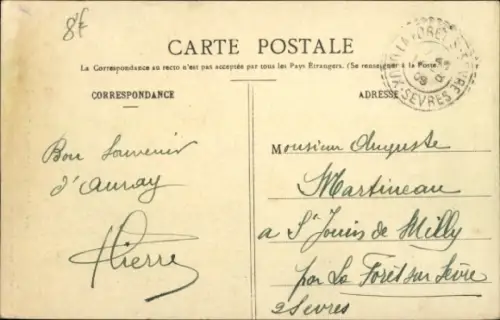 8f
CARTE POSTALE
La Correspondance au recto n'est pas acceptée par tous les Pays Etrangers. (Se renseigner à la Poste
CORRESPONDANCE
ADRESSE
SEVRES
Bon Souvenir
d'Auray
Pierre
Monsieur Auguste
Martineau
a St Jouin de Milly
par La Forêt sur Sèvre
2 Sevres